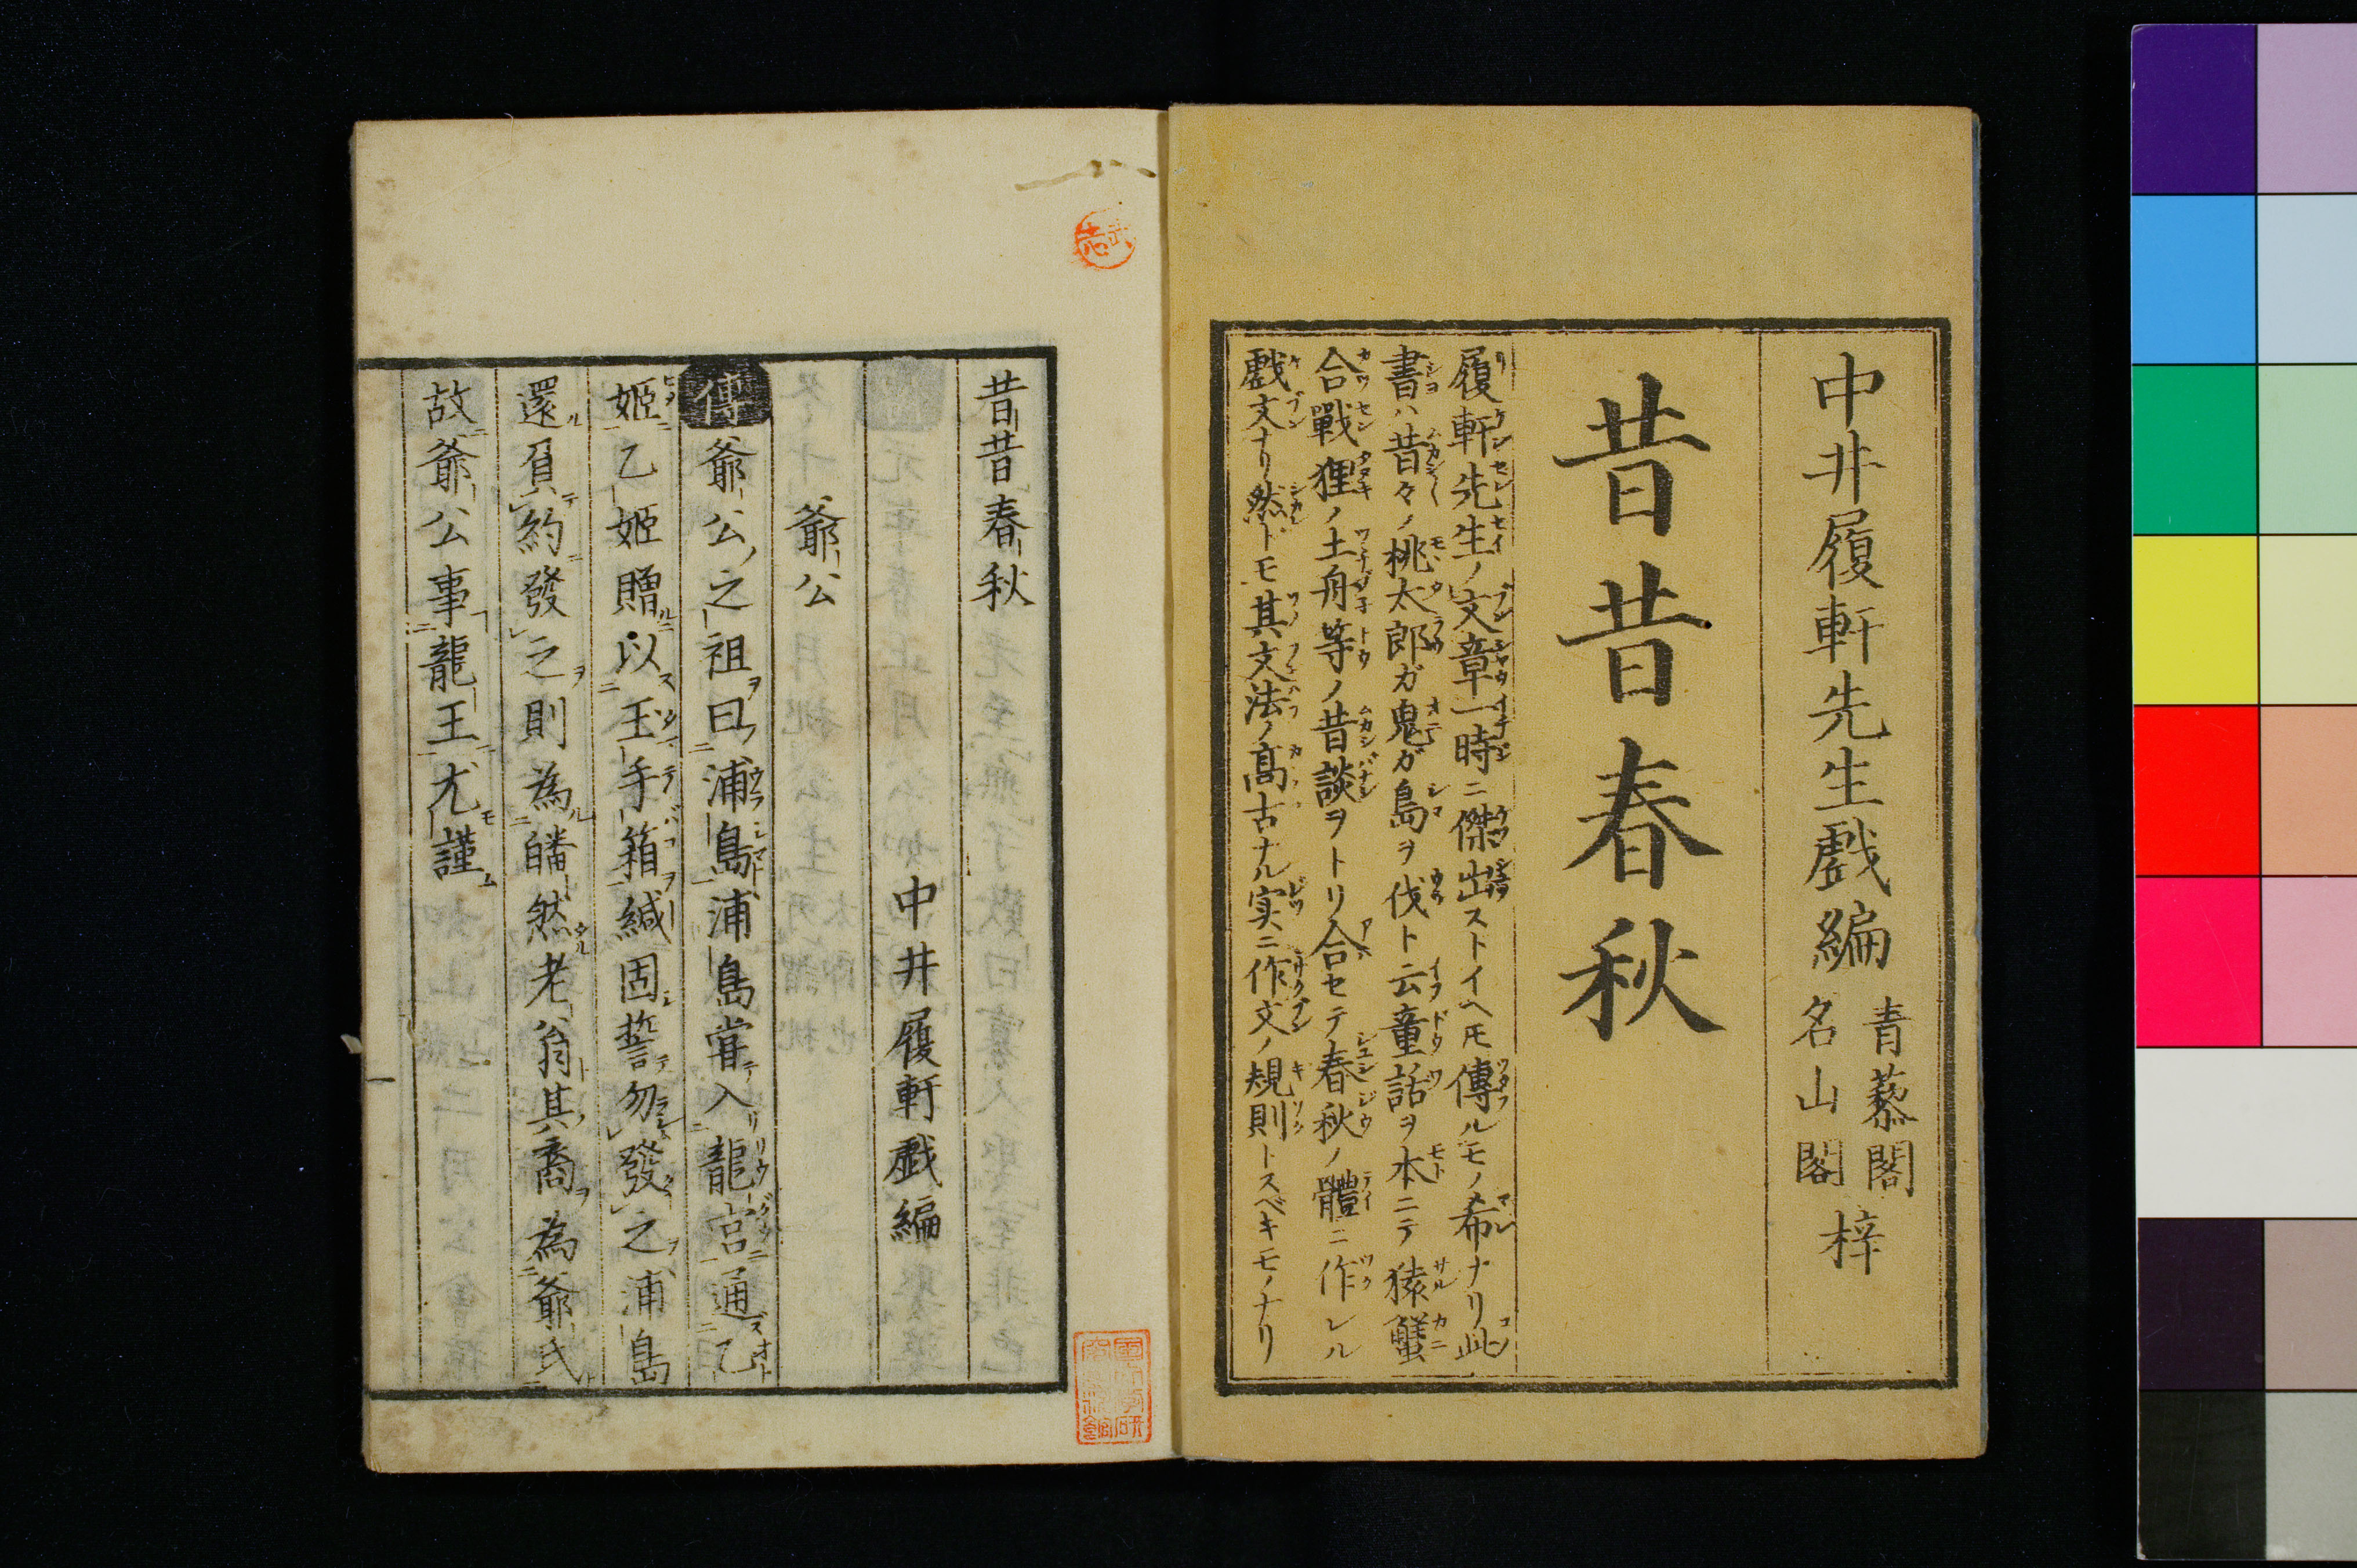 中井履軒先生戲編
青藜閣
名山閣
梓
昔昔春秋
履軒先生ノ文章一時ニ傑出ストイヘモ傳ルモノ希ナリ此
書ハ昔々ノ桃太郎ガ鬼ガ島ヲ伐ト云童話ヲ本ニテ猿蟹
合戰狸ノ土舟等ノ昔談ヲトリ合セテ春秋ノ體ニ作レル
戲文ナリ然トモ其文法ノ高古ナル実ニ作文ノ規則トスベキモノナリ
昔昔春秋
中井履軒戯編
爺公
傳爺公之祖曰浦島浦島嘗入龍宮通乙
姫乙姫贈以玉手箱緘固誓勿發之浦島
還負約發之則為皤然老翁其裔為爺氏
故爺公事龍王尤謹
一